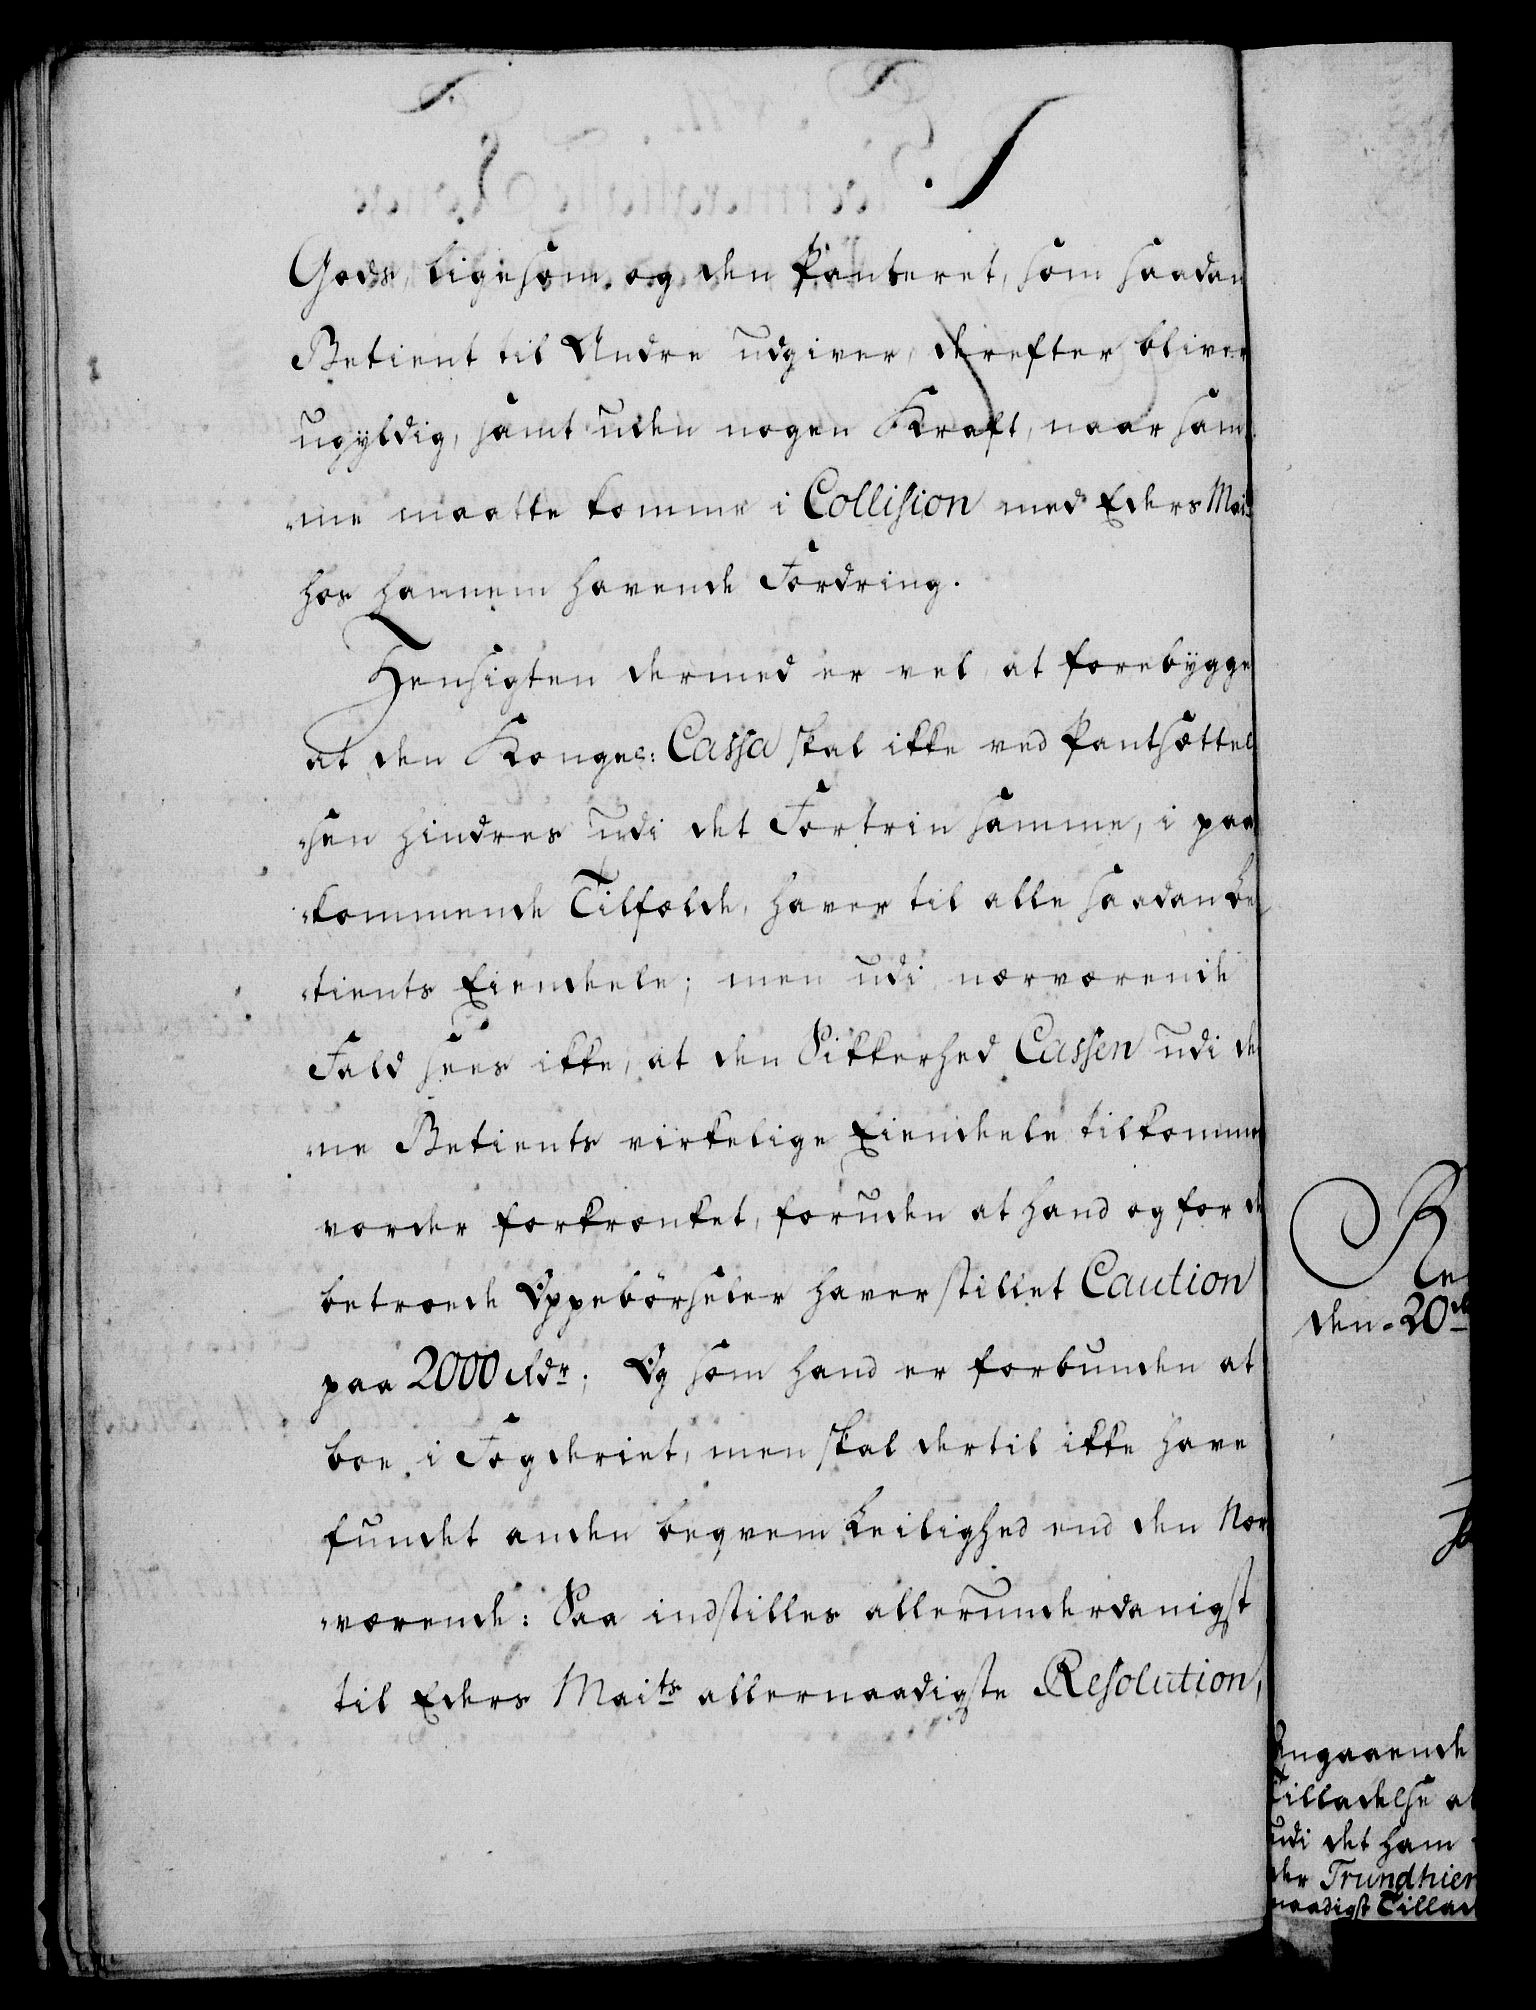 Gods, ligesom og den Panteret, som saadan
Betient til Andre udgiver, derefter bliver
ugyldig, samt uden nogen Kraft, naar sam„
„me maatte komme i Collision med Eders Mai
hos hannem havende Fordring.
Hensigten dermed er vel, at forebygge
at den Kongel: Cassa skal ikke ved Pantsættel
„sen hindres udi det Fortrin samme, i paa
„kommende Tilfælde, haver til alle saadan be
„tients Eiendele; men udi nærværende
Fald sees ikke, at den Sikkerhed Cassen udi de
„ne Betients virkelige Eiendele tilkomme
vorder forkrænket, foruden at hand og for de
betroede Oppebörseler haver stillet Caution
paa 2000 Rdr; Og som hand er forbunden at
boe i Fogderiet, men skal dertil ikke have
fundet anden beqvem Leilighed end den Nær
„værende: Saa indstilles allerunderdanigst
til Eders Maits allernaadigste Resolution,
Re
den 20de
Angaaende
Tilladelse at
udi det ham
der Trundhiem
naadigst Tillad